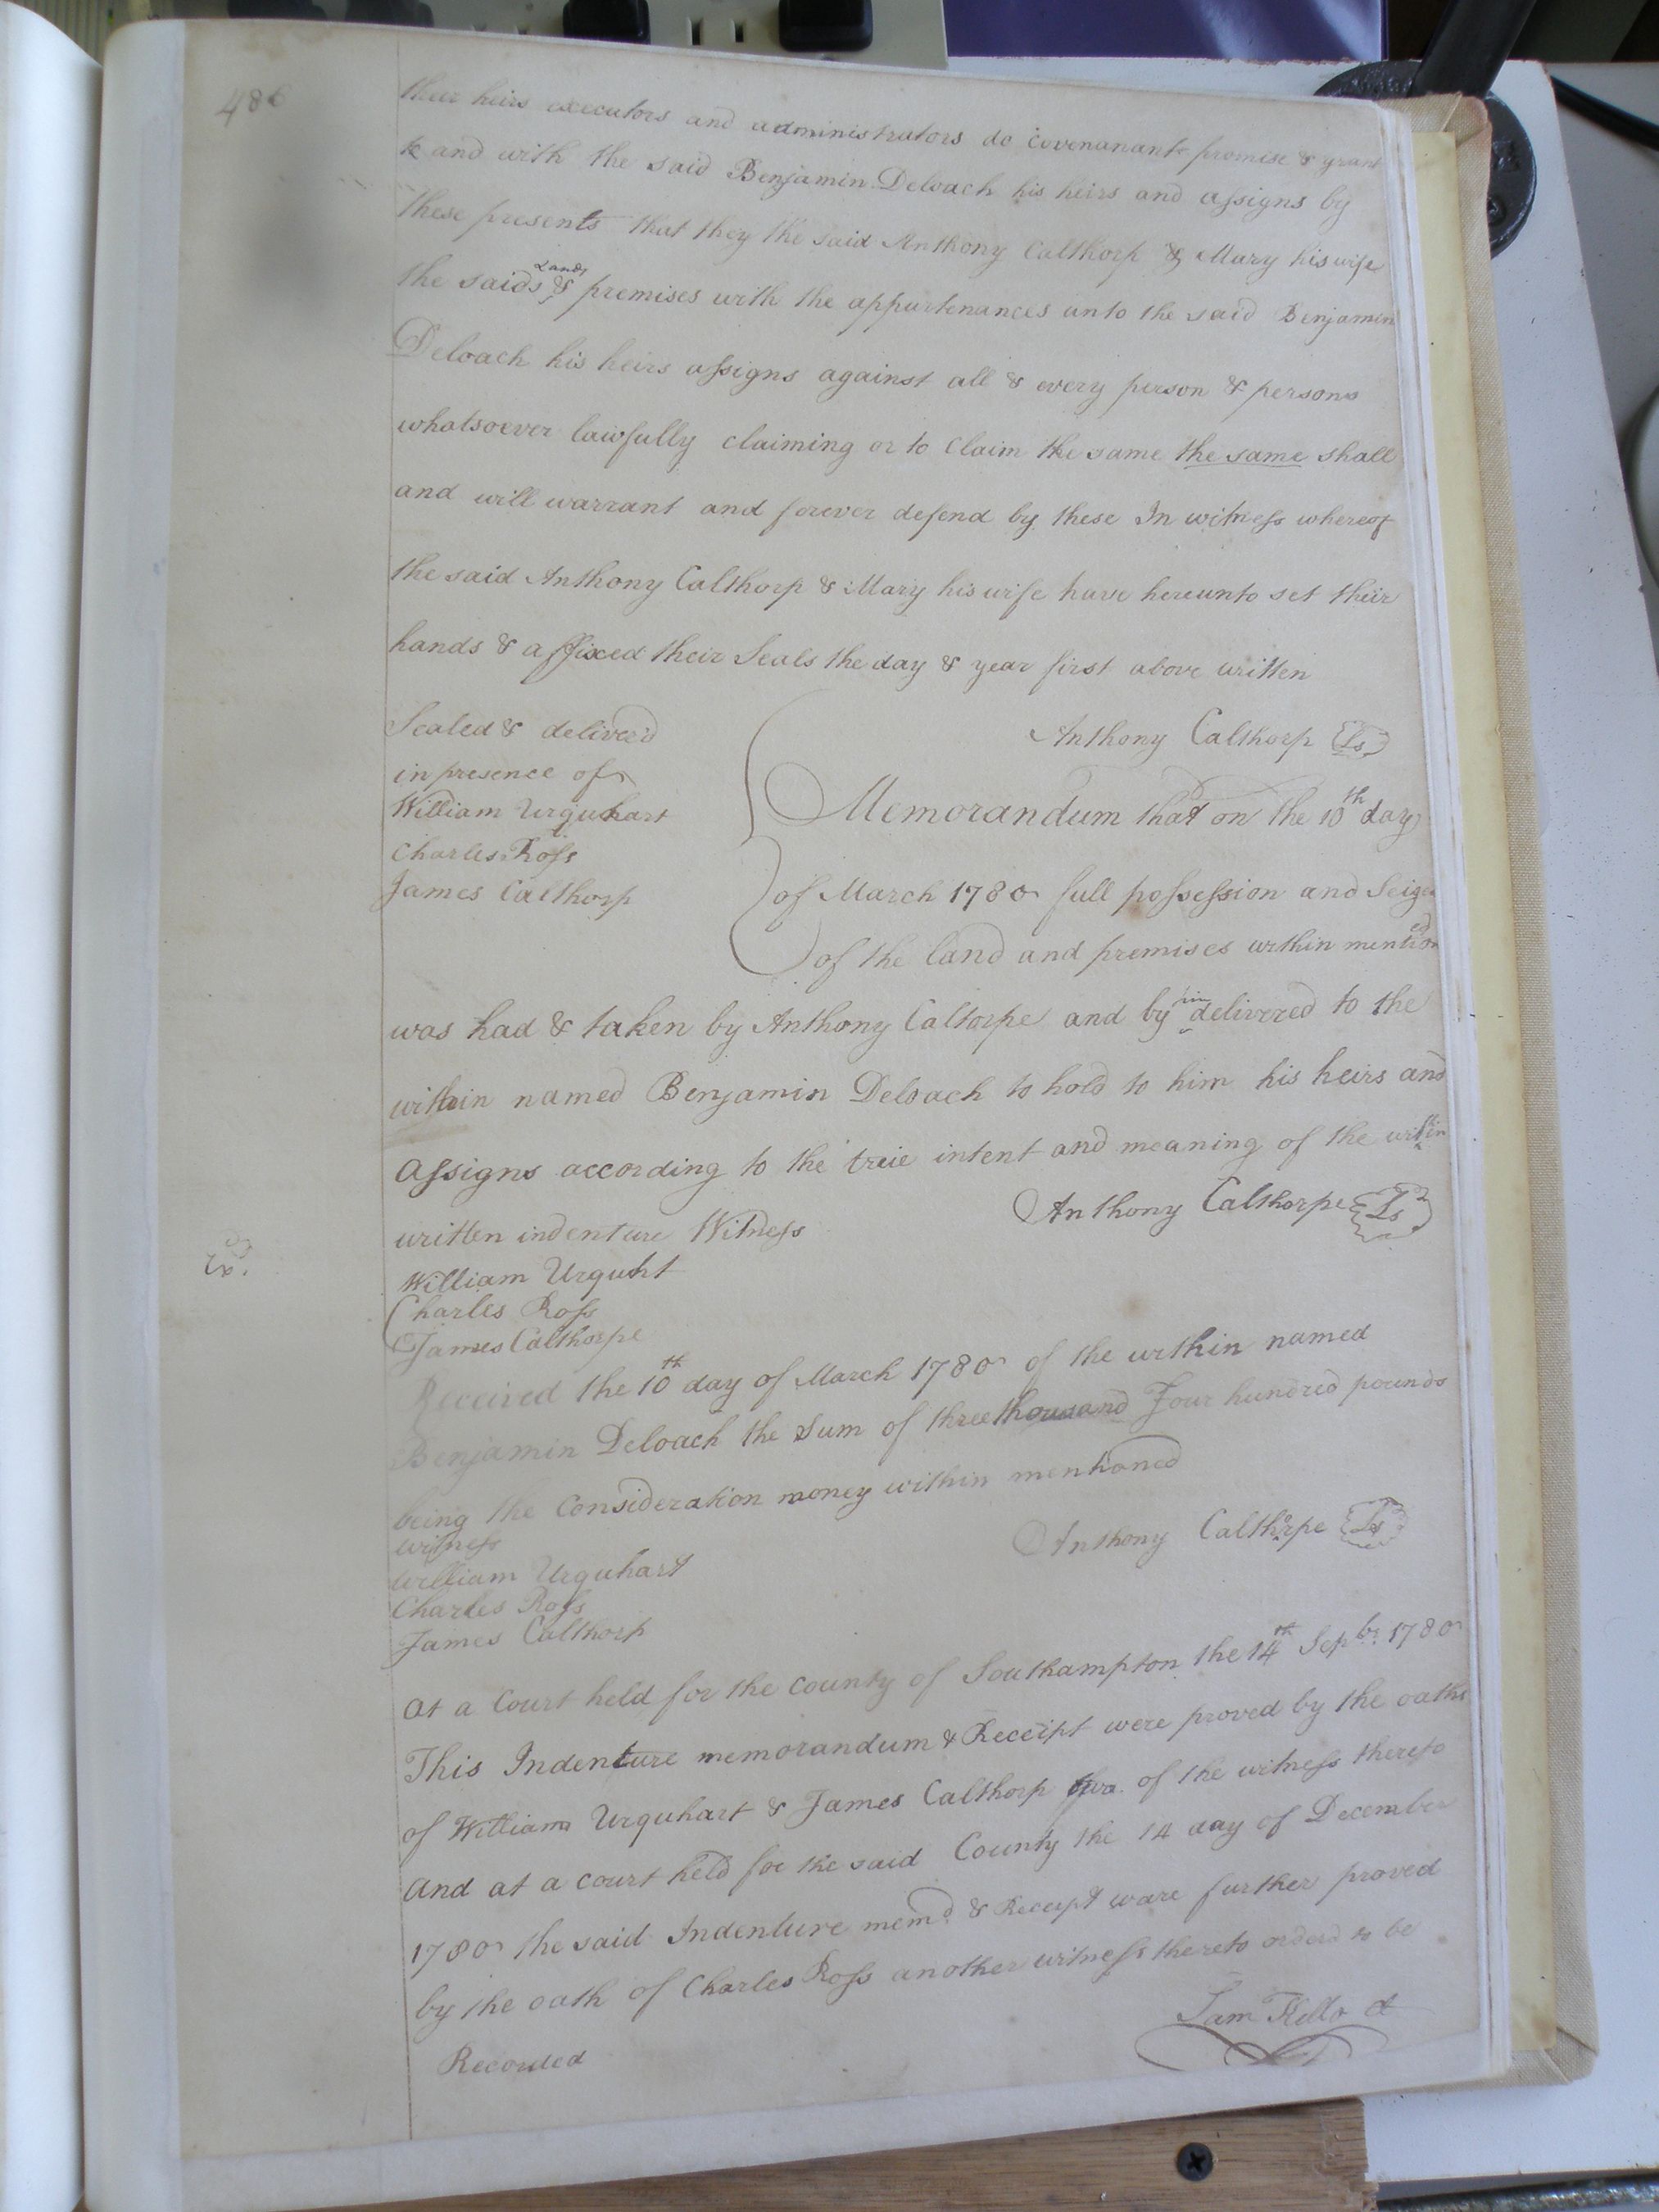 486
their heirs executors and administrators do covenanant promise & grant
to and with the said Benjamin Deloach his heirs and assigns by
these presents that they the said Anthony Calthorp & Mary his wife
the said Land & premises with the appurtenances unto the said Benjamin
Deloach his heirs assigns against all & every person & persons
whatsoever lawfully claiming or to Claim the same the same shall
and will warrant and forever defend by these In witness whereof
the said Anthony Calthorp & Mary his wife have hereunto set their
hands & affixed their Seals the day & year first above written
Sealed & deliver'd
in presence of
William Urquhart
Charles Ross
James Calthorp
Anthony Calthorp Ls
Memorandum that on the 10th day
of March 1780 full possession and Seizen
of the land and premises within mentioned
was had & taken by Anthony Caltorpe and by him delivered to the
within named Benjamin Deloach to hold to him his heirs and
Assigns according to the true intent and meaning of the within
written indenture Witness
Anthony Calthorpe Ls
William Urquht
Charles Ross
James Calthorpe
Ex.d
Received the 10th day of March 1780 of the within named
Benjamin Deloach the Sum of three thousand Four hundred pounds
being the Consideration money within mentioned
witness
Anthony Calthorpe Ls
William Urquhart
Charles Ross
James Calthorp
At a Court held for the County of Southampton the 14th Sepbr. 1780
This Indenture memorandum & Receipt were proved by the oaths
of William Urquhart & James Calthorp two of the witness thereto
And at a court held for the said County the 14 day of December
1780 the said Indenture memd. & Receipt ware further proved
by the oath of Charles Ross another witness thereto orderd to be
Recorded
Sam Kello Ct